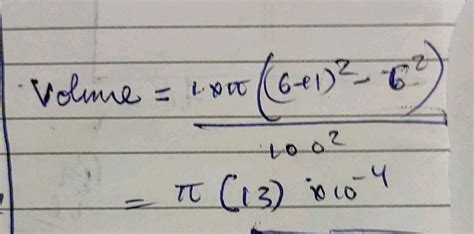 Volume = 1×π((6+1)² - 6²)
100²
= π (13) ×10⁻⁴